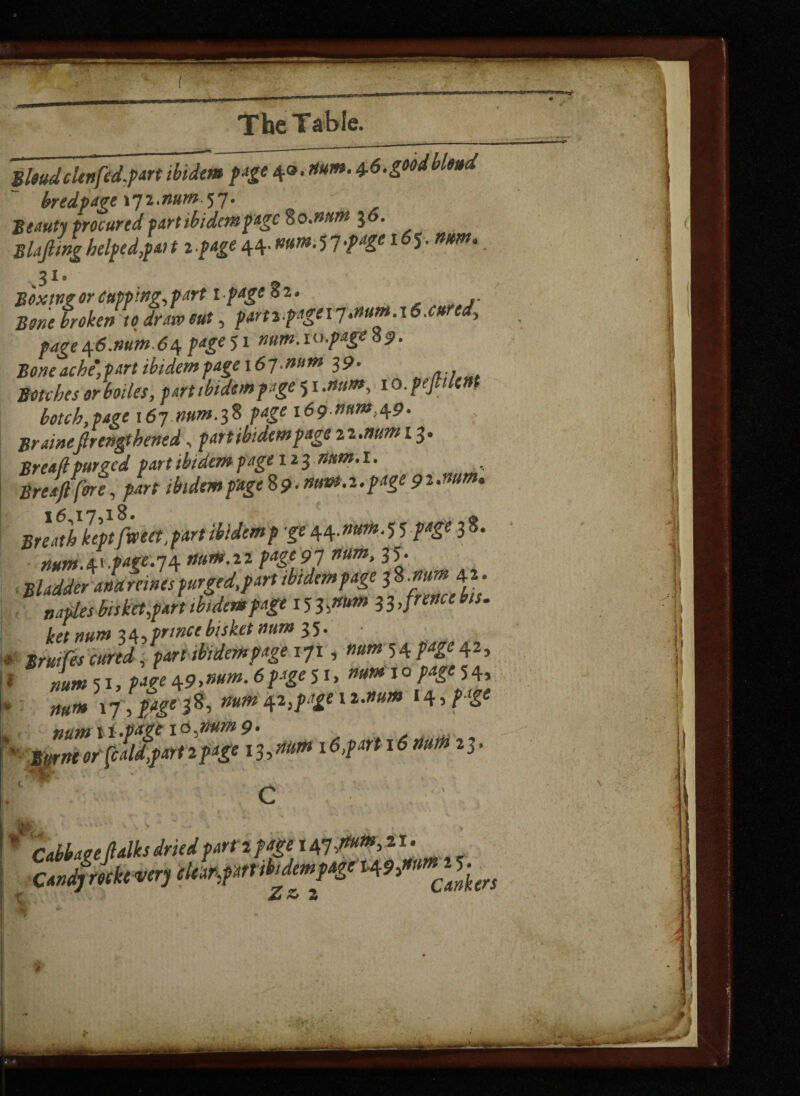 The Table.
Bloud clenſed.part ibidem page 40. num. 46.good bloud
bred page 172.num. 57.
Beauty procured part ibidem page 80.num 36.
Blaſting helped,part 2.page 44. num. 57.page 165. num.
31.
Boxing or Cupping, part 1 page 82.
Bone broken to draw out, part 2.page 17.num. 16.cured,
page 46.num.64 page 51 num. 10.page 89.
Bone ache, part ibidem page 167.num 39.
Botches or boiles, part ibidem page 51.num, 10.peſtilent
botch, page 167 num.38 page 169.num,49.
Braine ſtrengthened, part ibidem page 22.num 13.
Breaſt purged part ibidem page 123 num.1.
Breaſt ſore, part ibidem page 89. num.2.page 92.num.
16,17,18.
Breath kept ſweet,part ibidem p ge 44.num.55 page 38.
num.41.page.74 num.22 page 97 num, 35.
Bladder and reines purged,part ibidem page 38.num 42.
naples bisket,part ibidem page 153,num 33,frence bis-
ket num 34,prince bisket num 35.
Bruiſes cured, part ibidem page 171, num 54 page 42,
num 51, page 49,num. 6 page 51, num 10 page 54,
num 17, page 38, num 42,page 12.num 14, page
num 11.page 10,num 9.
Burne or ſcald,part 2 page 13,num 16,part 16 num 23.
C
Cabbage ſtalks dried part 2 page 147,num, 21.
Candy rocke very clear,part ibidem page 149,num 25.
Zz 2 Cankers